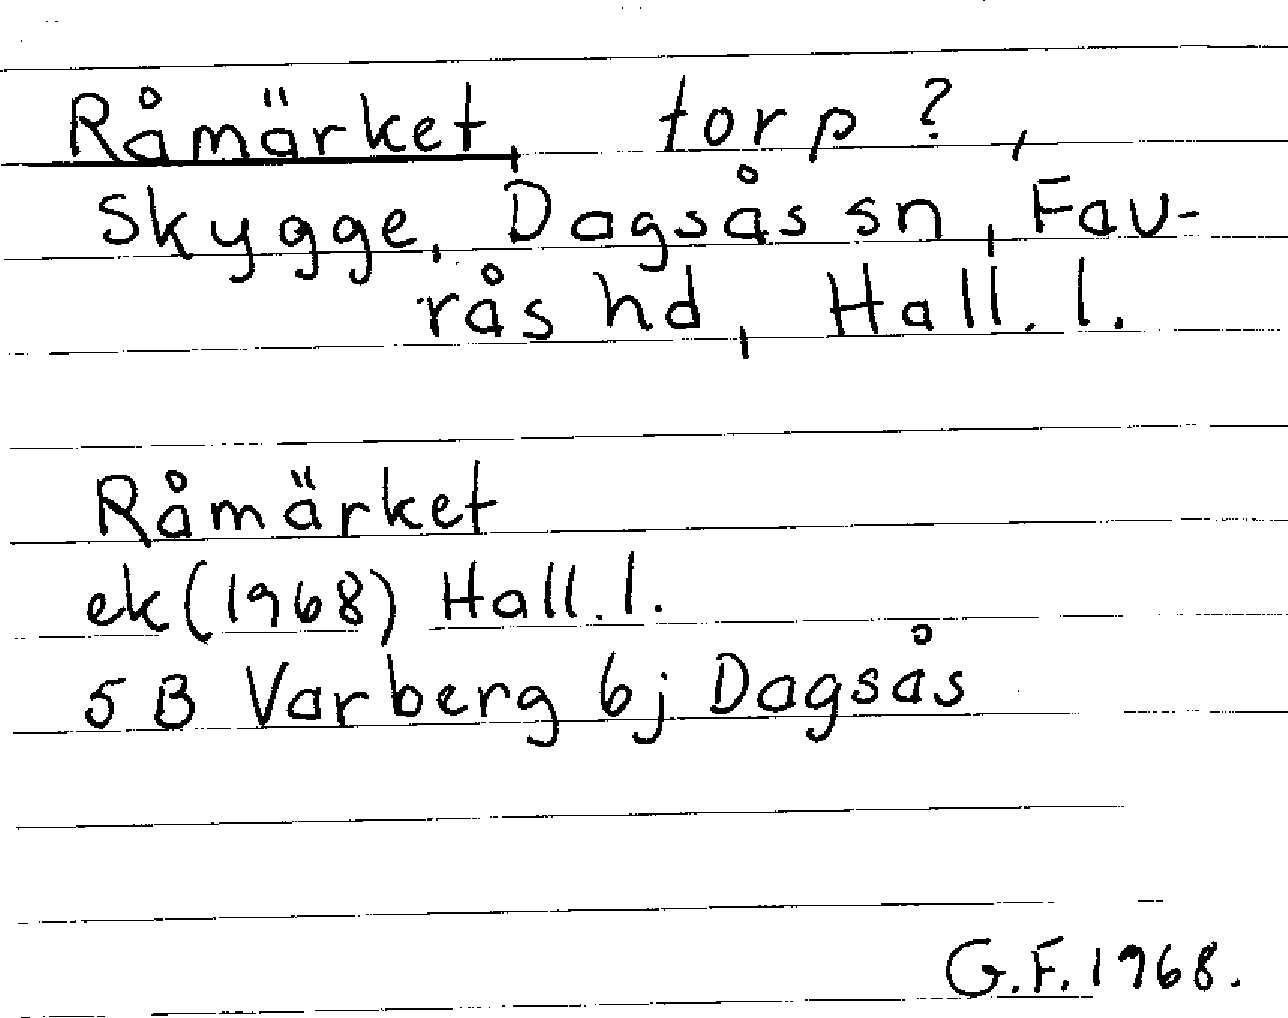 Råmärket, torp?,
Skygge, Dagsås sn, Fav-
rås hd, Hall. l.
Råmärket
ek (1968) Hall. l.
5 B Varberg 6j Dagsås
G.F. 1968.